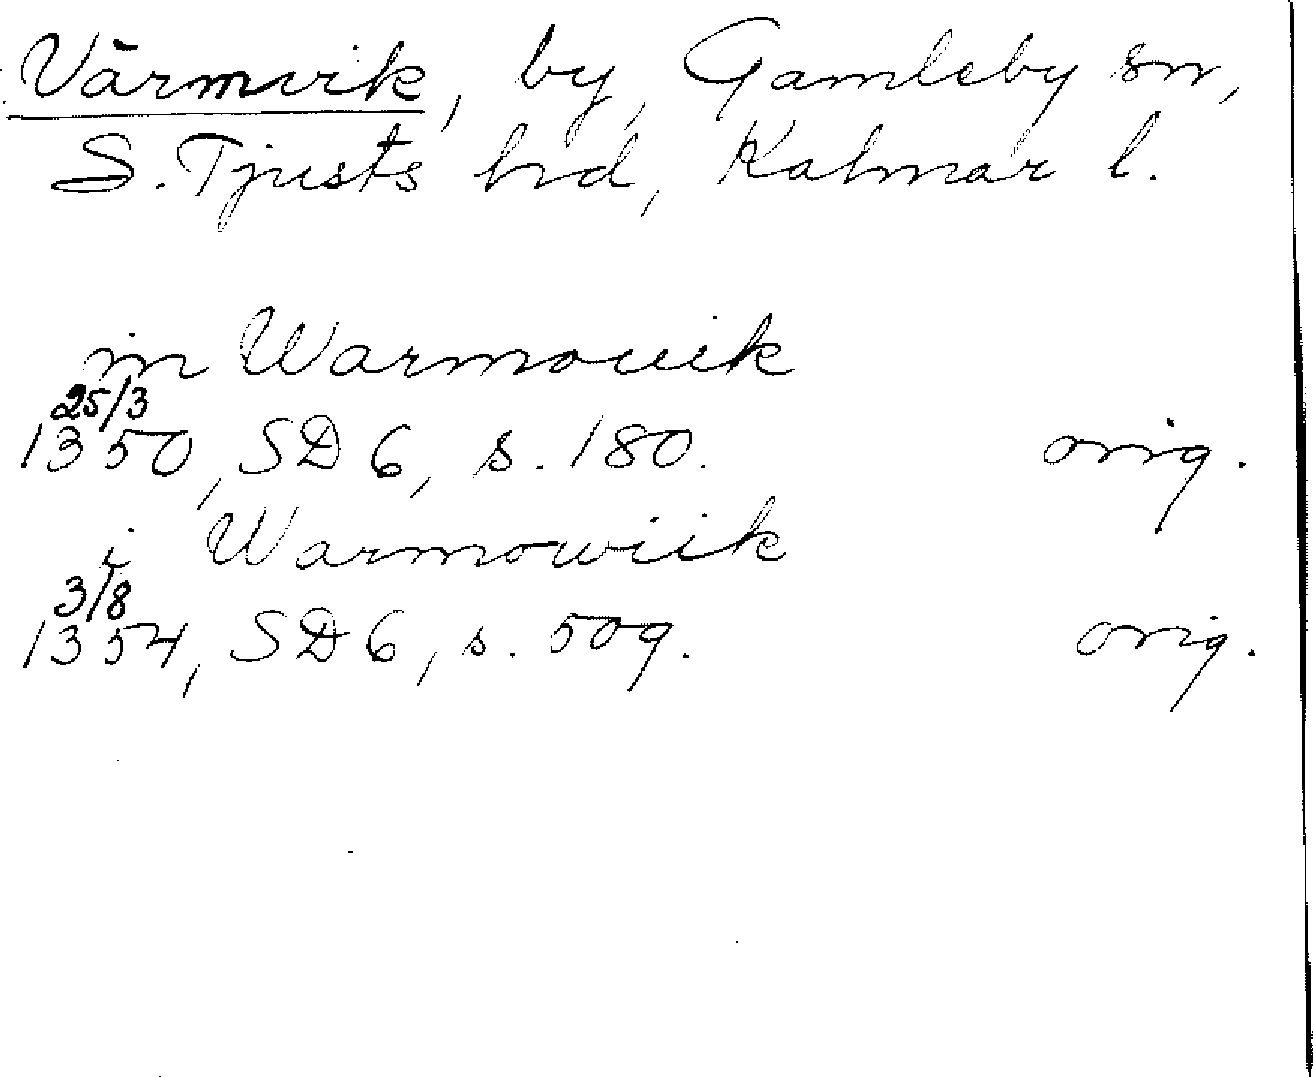 Värmvik, by, Gamleby sn,
S. Tjusts hd, Kalmar l.
in Warmouik
25/3
1350, SD 6, s. 180. orig.
i Warmowiik
3/8
1354, SD 6, s. 509. orig.